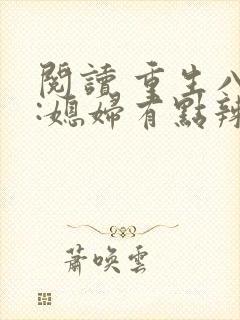 閱讀 重生八
:媳婦有點辣
蕭喚雲